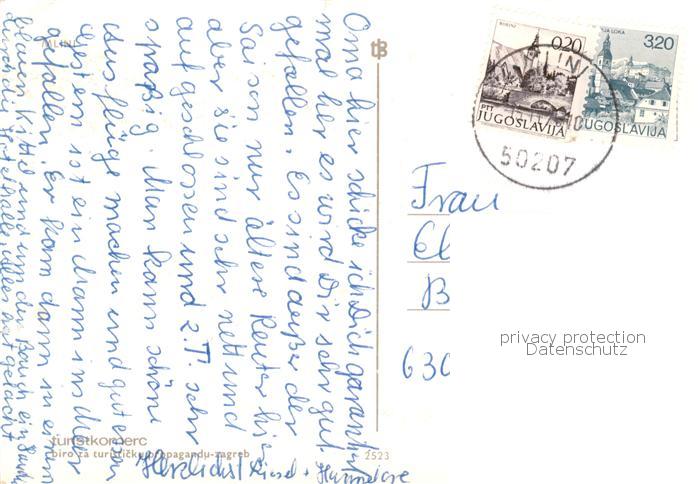 Oma hier schicke ich Dich garantiert
mal her es wird Dir sehr gut
gefallen. Es sind außer der
Saison nur ältere Leute hier
aber sie sind sehr nett und
aufgeschlossen und z.T. sehr
spaßig. Man kann schöne
Ausflüge machen und gut essen
Gestern ist ein Mann ins Meer
gefallen. Er kam dann in einem
blauen Kittel und um den Bauch ein
durch die Hotelhalle, alles hat gelacht
Herzlichst
MLINI
turistkomerc
biro za turističku propagandu-zagreb
2523
ROVINJ
0,20
PTT
JUGOSLAVIJA
LOKA
3,20
JUGOSLAVIJA
MLINI
50207
Frau
El
B
630
privacy protection
Datenschutz